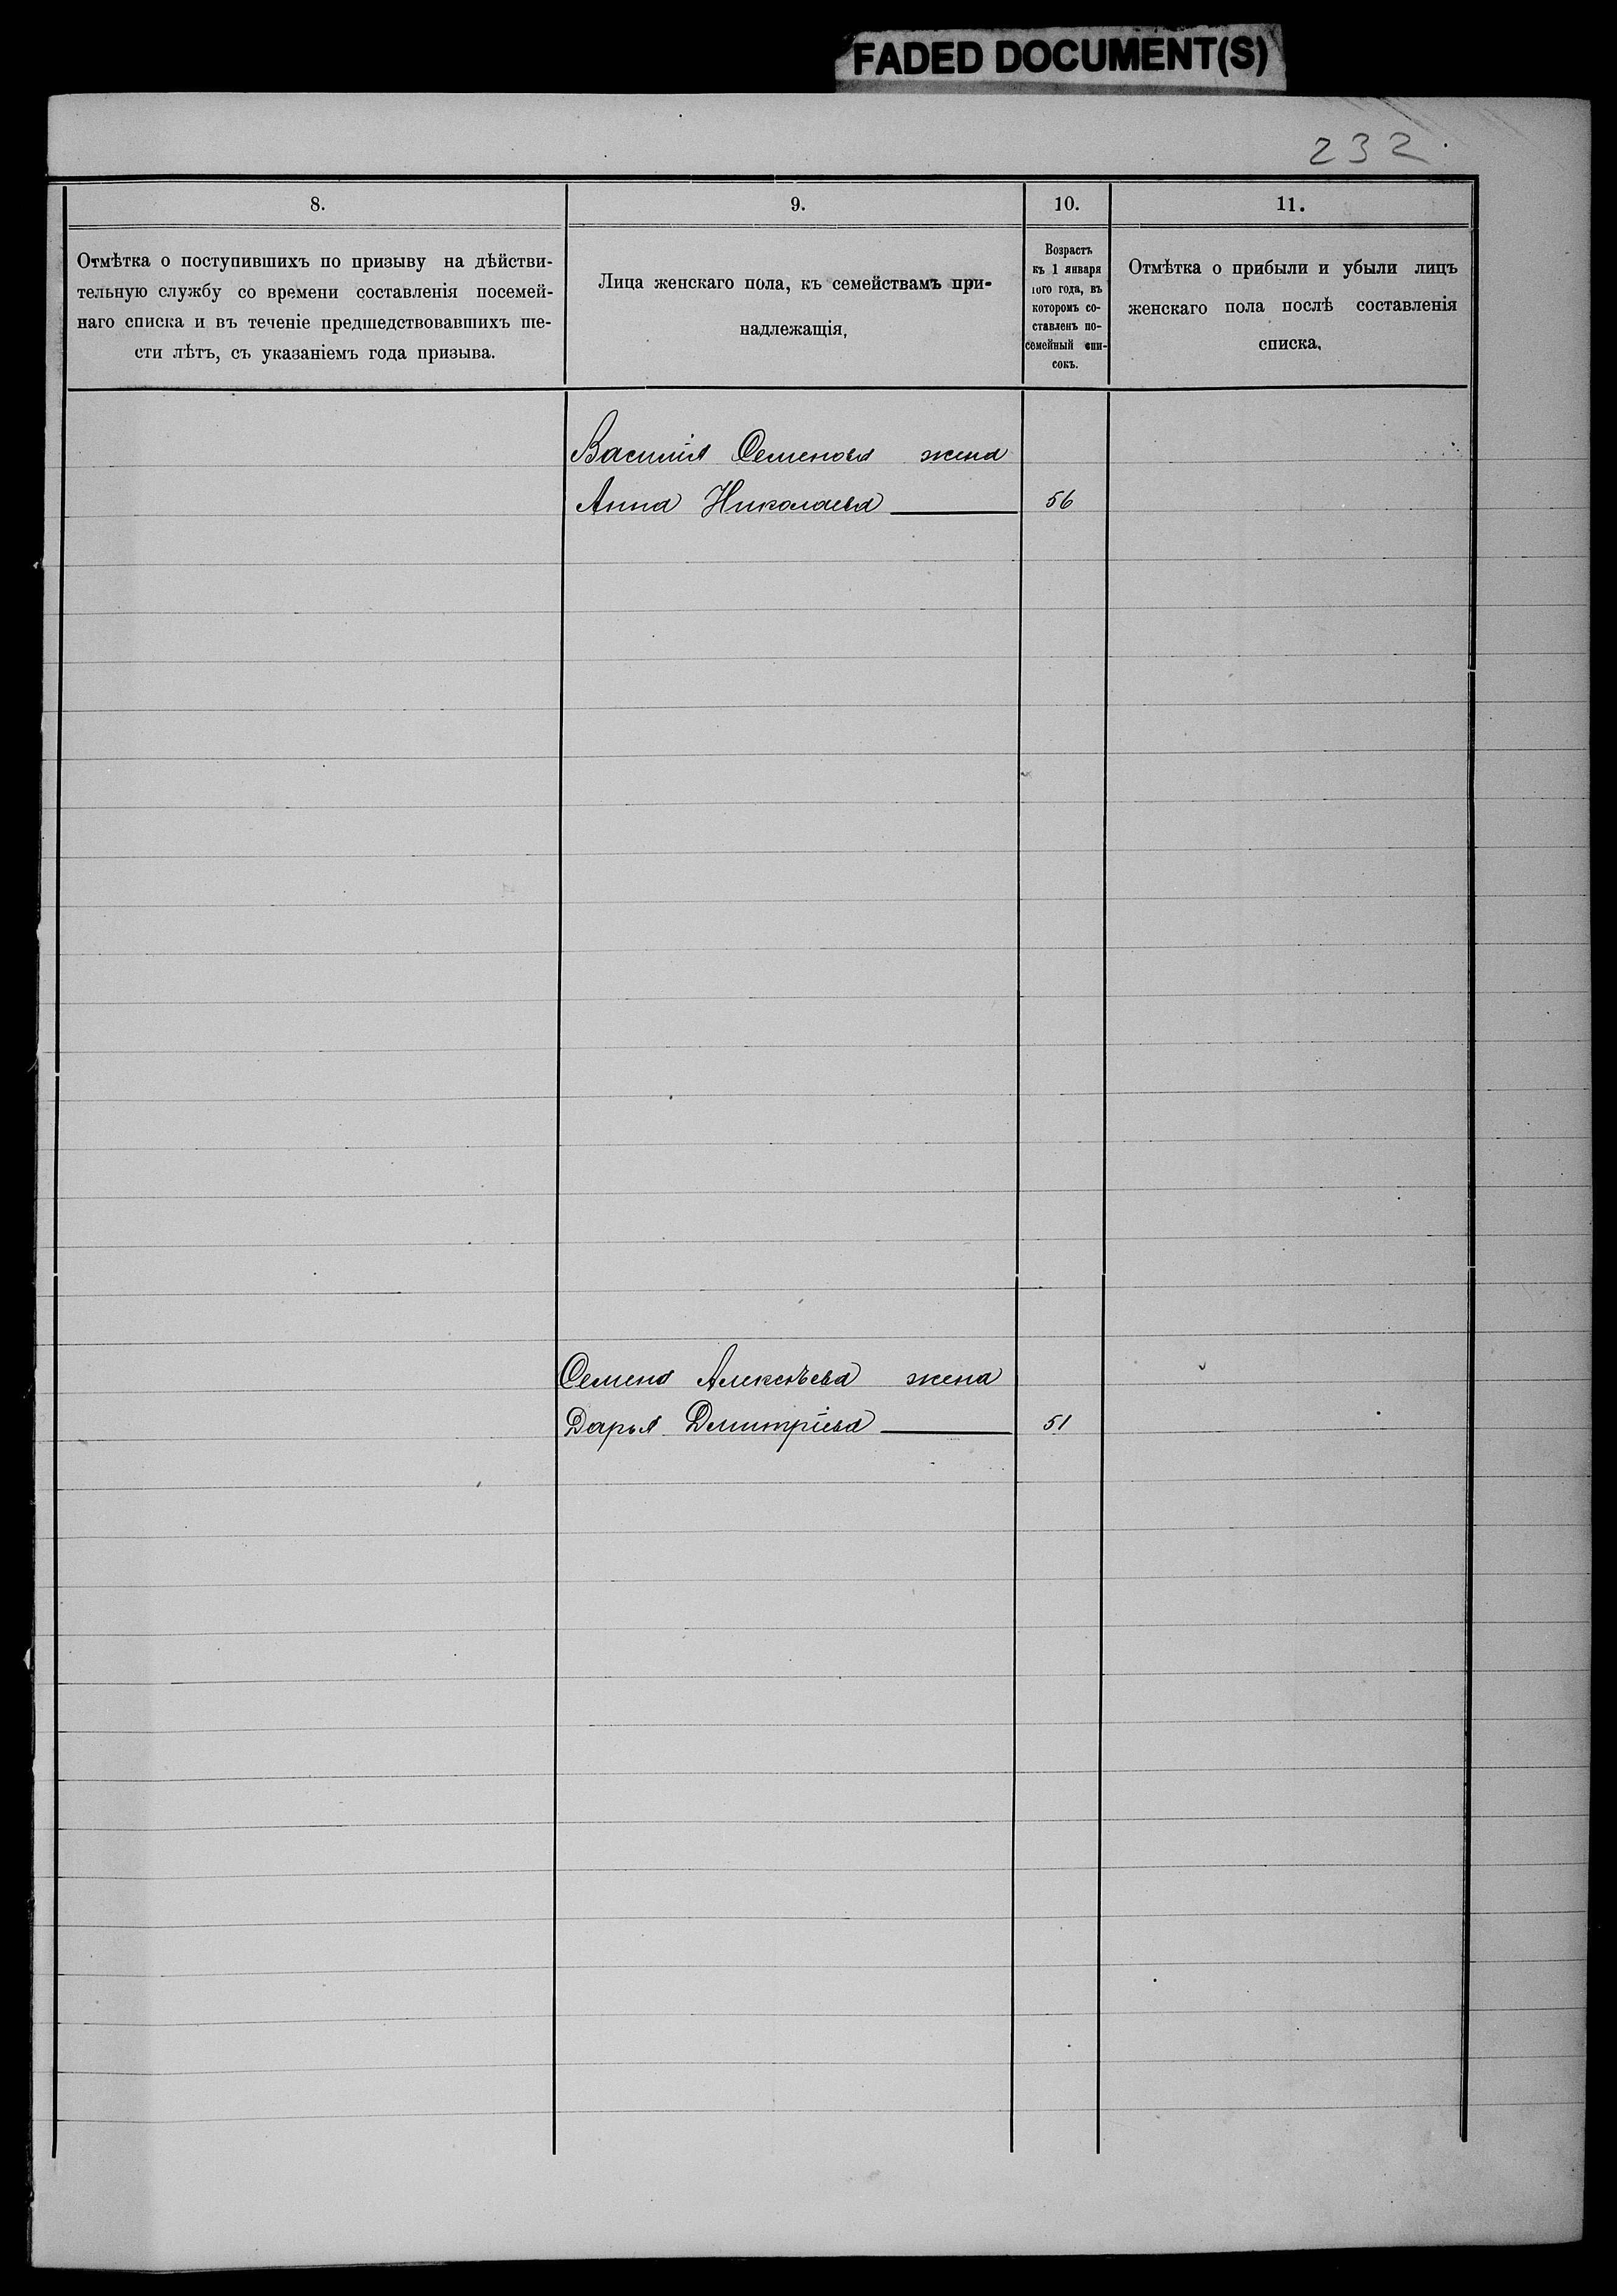 FADED DOCUMENT(S)
232
8.
9.
10.
11.
Отмѣтка о поступившихъ по призыву на дѣйстви-
тельную службу со времени составленія посемей-
наго списка и въ теченіе предшедствовавшихъ ше-
сти лѣтъ, съ указаніемъ года призыва.
Лица женскаго пола, къ семействамъ при-
надлежащія,
Возрастъ
къ 1 января
того года, въ
которомъ со-
ставленъ по-
семейный спи-
сокъ.
Отмѣтка о прибыли и убыли лицъ
женскаго пола послѣ составленія
списка,
Василія Семенова жена
Анна Николаева 56
Семена Алексѣева жена
Дарья Дмитріева 51